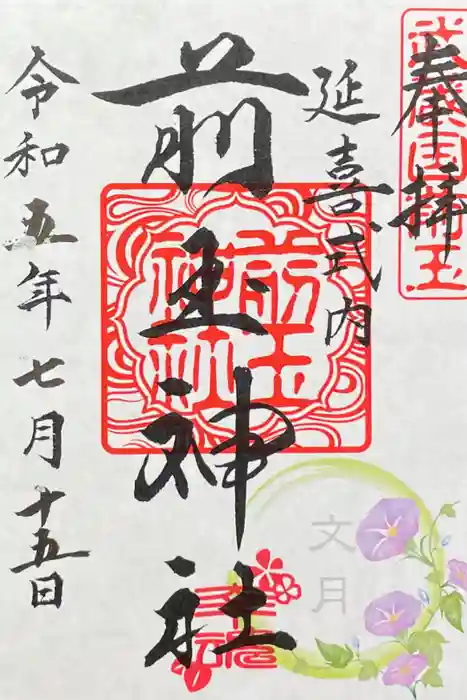 奉拝
武蔵国埼玉
延喜式内
前玉神社
前玉神社
令和五年七月十五日
文月